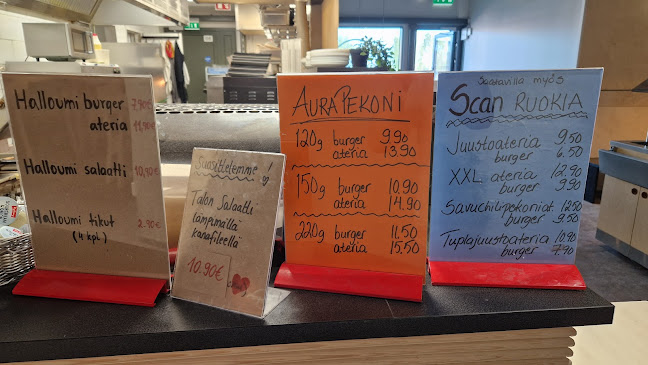 Halloumi burger 7.90€
ateria 11.90€
Halloumi salaatti 10.90€
Halloumi tikut 2.90€
(4 kpl.)
Suosittelemme!
Talon Salaatti
lämpimällä
kanafileellä
10.90€
AURAPEKONI
120g burger 9.90
ateria 13.90
150g burger 10.90
ateria 14.90
220g burger 11.50
ateria 15.50
Saatavilla myös
Scan RUOKIA
Juustoateria 9.50
burger 6.50
XXL ateria 12.90
burger 9.90
Savuchilipekoniat. 12.50
burger 9.50
Tuplajuustoateria 10.90
burger 7.90